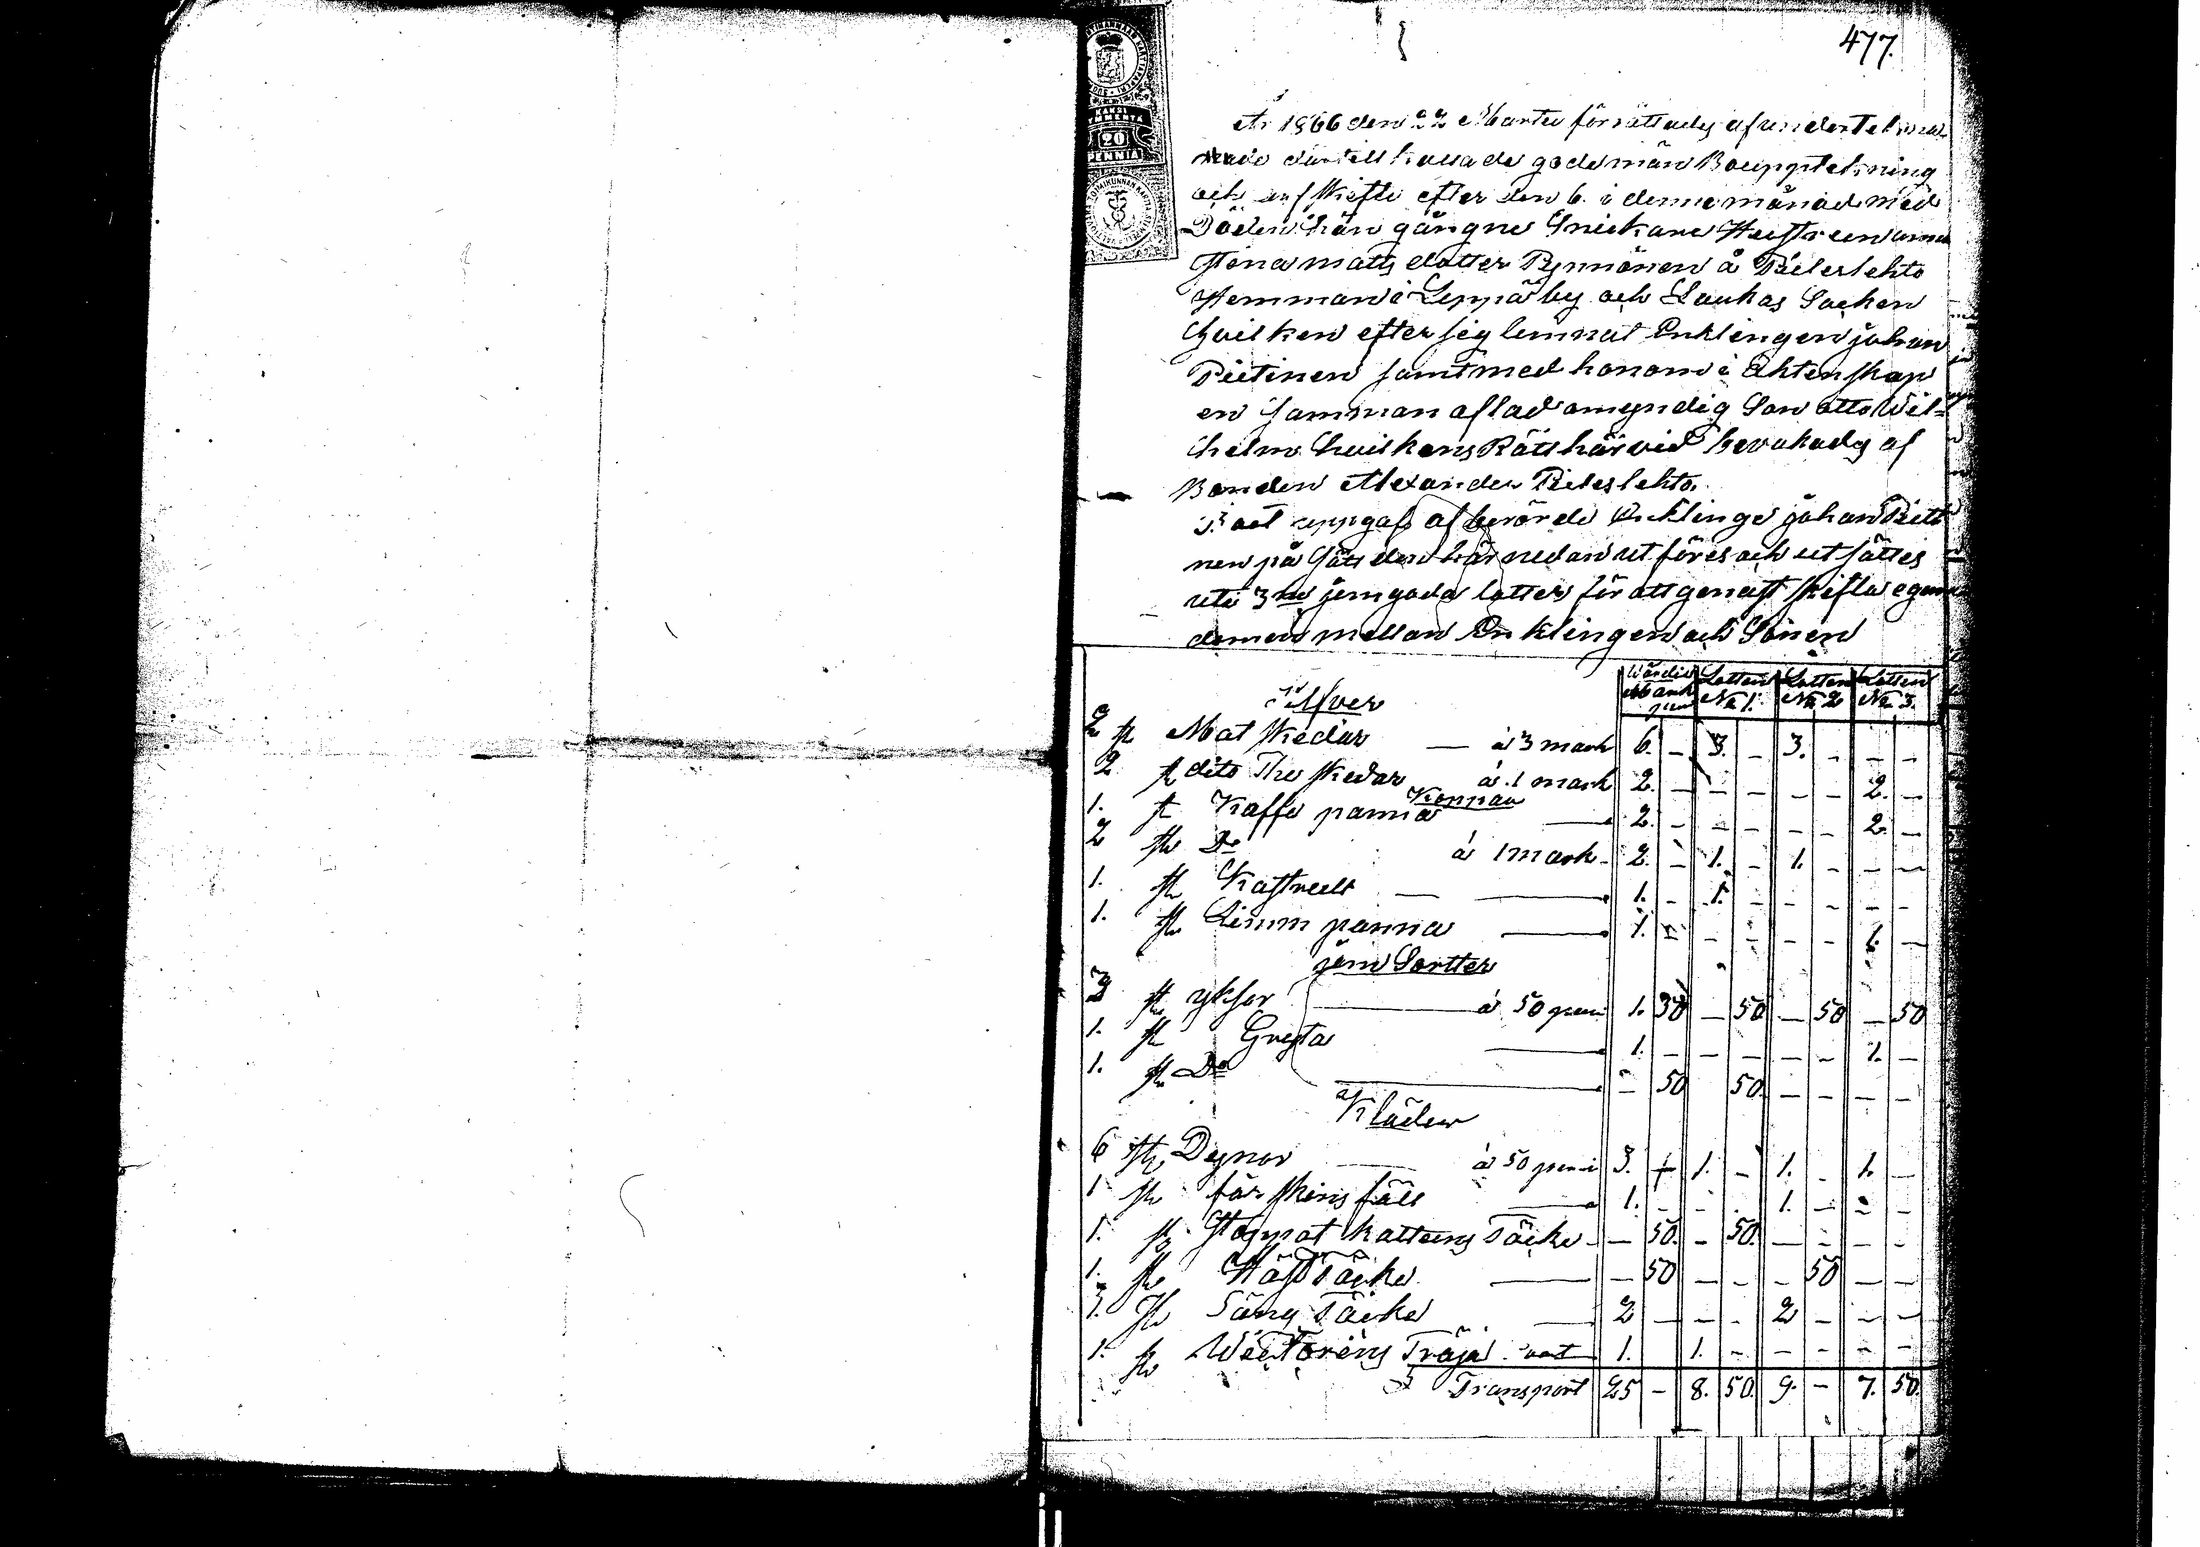 477.
KAKSI
20
PENNIÄ
År 1866 den 22 Martii förrättades af undertekna
nade dertill kallade gode män Bouppteckning
och arfskifte efter den 6. i denne månad med
Döden från gångne Snickare Hustrun Anna
Stena matts dotter Pynnönen å Pieleslehto
Hemman i Leppä by och Laukas Socken
Hvilken efter sig lemnat Enklingen johan
Piitinen samt med honom i Ektenskap
en samman aflad omyndig Son otto Wil=
helm hvilkens Rätt härvid bevakades af
Bonden Alexander Pieleslehto.
Boet uppgafs af berörde Enklinge johan Piiti
nen på Sätt den här nedan ut föres och utsättes
uti 3ne jemgoda lotter för att genast skifta egen
domen mellan Enklingen och Sonen
Wärdie Mark penni | Lotten No 1. | Lotten No 2 | Lotten No 3.
Silfver
2 st Mat skedar — à 3 mark 6. — 3. — 3. — — —
2 st dito The skedar à 1 mark 2. — — — — — 2. —
Koppar
1. st Kaffe panna — 2. — — — — — 2. —
2 st Do à 1 mark 2. — 1. — 1. — — —
1. st Kastrull — 1. — 1. — — — — —
1. st Limm panna — 1. — — — — — 1. —
jern Sortter
3 st yksor à 50 pen 1. 50 — 50 — 50 — 50
1. st Gryta — 1. — — — — — 1. —
1. st Do — — 50 50. — — — —
Kläder
6 st Dynor à 50 penni 3. — 1. — 1. — 1. —
1 st får skins fäll — 1. — — — 1. — — —
1. st Stoppat kattuns Täcke — — 50. — 50. — — — —
1. st Häst Täcke — — 50 — — — 50 — —
3. st Säng Täcke — 2 — — — 2 — — —
1. st Tröja 1. 1. — — — — —
Transport 25 — 8. 50. 9. — 7. 50.